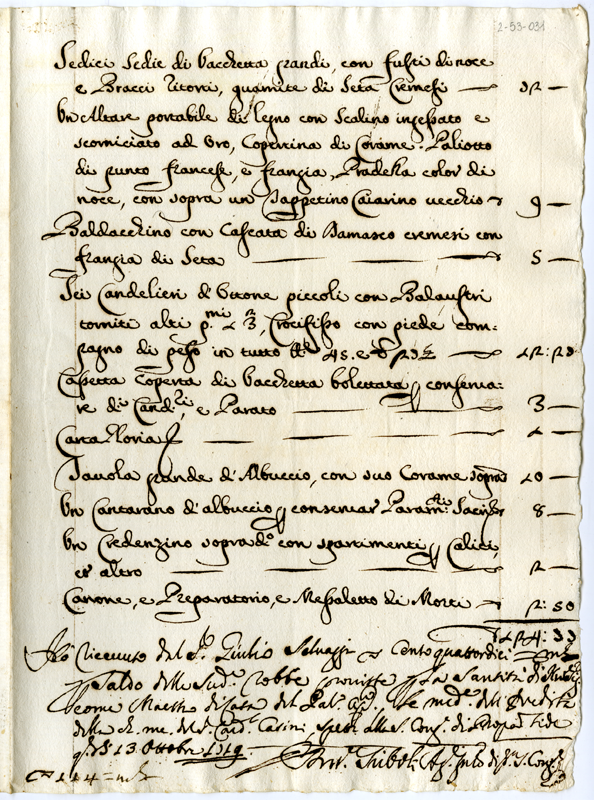 2-53-031
Sedici Sedie di Vacchetta grandi, con fusti di noce
e Bracci ritorti, guarnite di Seta Cremesi
Un Altare portabile di legno con Scalino ingessato e
scorniciato ad Oro, Copertina di Corame. Paliotto
di punto francese, e frangia, Pradella color di
noce, con sopra un Tappetino Caiarino vecchio 9
Baldacchino con Cascata di Damasco cremesi con
frangia di Seta 5
Sei Candelieri d'Ottone piccoli con Balaustri
torniti alti p.mi 2 3, Crocifisso con piede com=
pagno di peso in tutto 45. e
Cassetta Coperta di Vacchetta bollettata conserva=
re di Cand.ri, e Parato 3
Carta Gloria
Tavola grande d'Albuccio, con suo Corame sopra 10
Un Cantarano d'albuccio conservar Param.ti Sacri 8
Un Credenzino soprad.o con spartimenti Calici,
et altro
Canone, e Preparatorio, e Messaletto di Morti : 50
: 33
Io ricevuto dal S. Giulio Selvaggi Cento quattordici
saldo delle Sud.e robbe Santità di
come Maestro di Casa del Eredità
della ch. me. del Card. Casini, alla S. Cong. di Propag. fide
13 Ottobre 1719
114 =